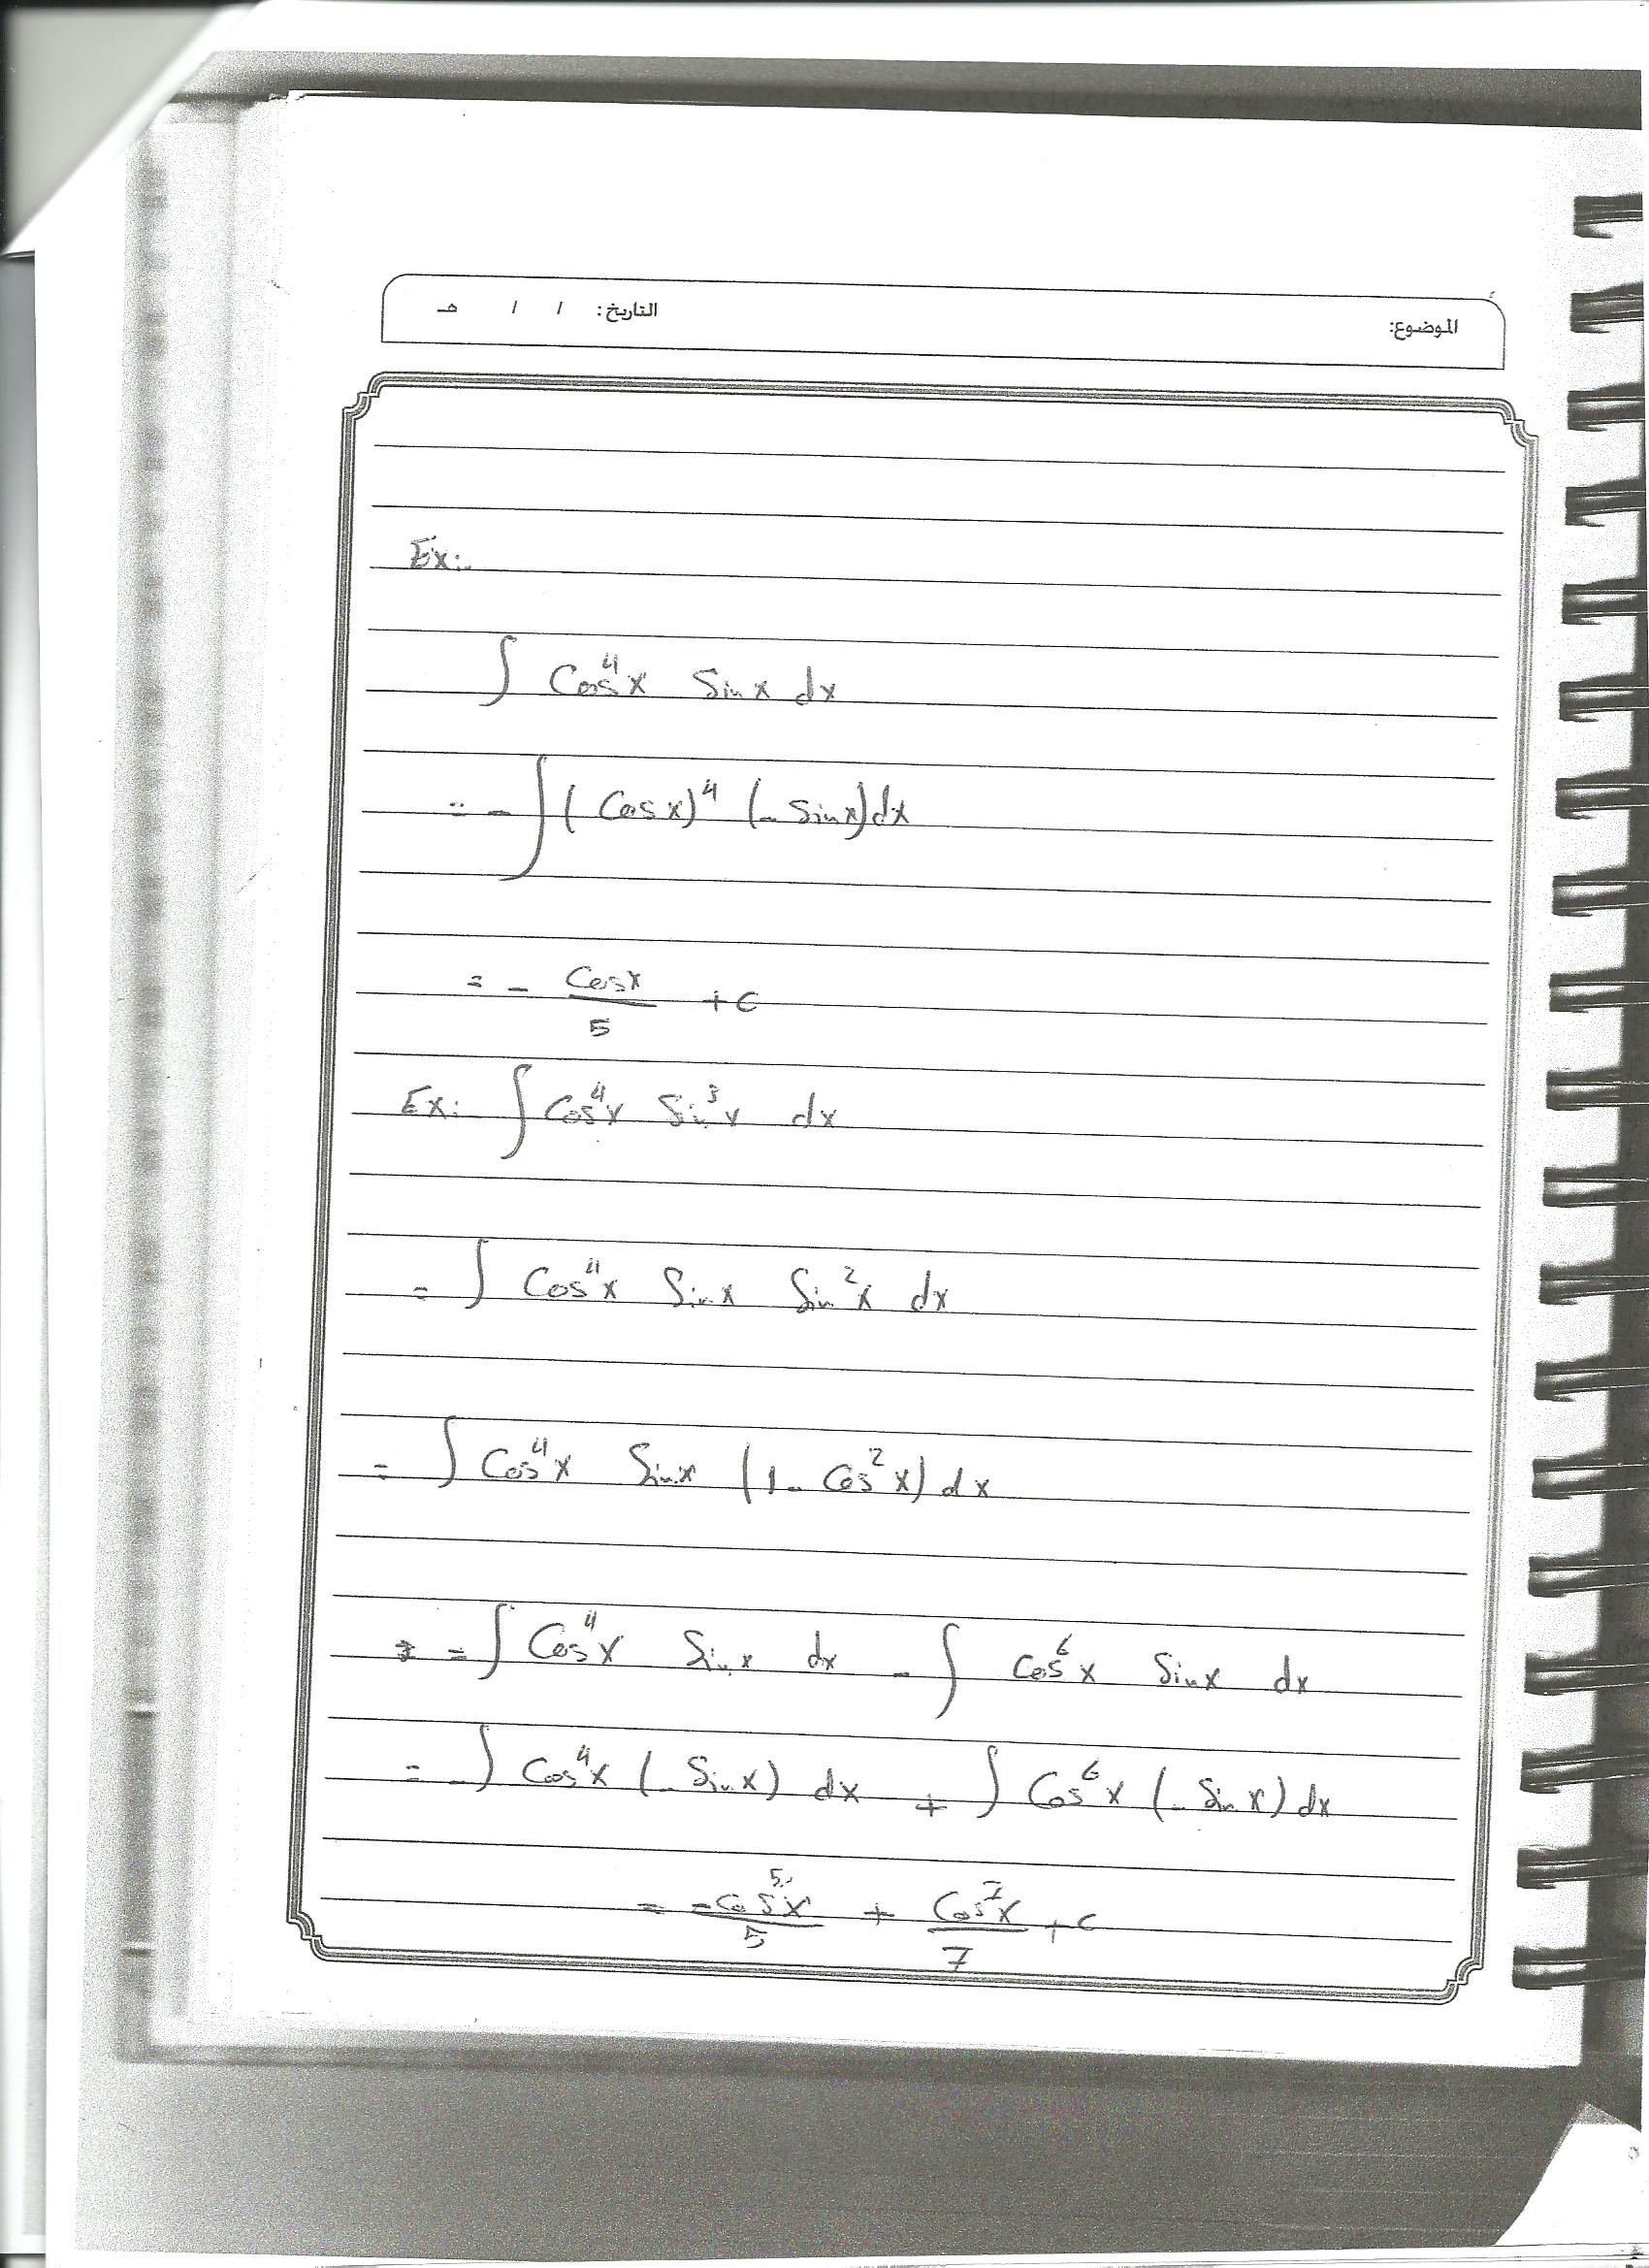 الموضوع: التاريخ: / / هـ
Ex:
∫ Cos⁴x Sinx dx
= - ∫ (Cosx)⁴ (-Sinx)dx
= - Cosx/5 + c
Ex: ∫ Cos⁴x Sin³x dx
= ∫ Cos⁴x Sinx Sin²x dx
= ∫ Cos⁴x Sinx (1 - Cos²x) dx
= = ∫ Cos⁴x Sinx dx - ∫ Cos⁶x Sinx dx
= - ∫ Cos⁴x (-Sinx) dx + ∫ Cos⁶x (-Sinx) dx
= -Cos⁵x/5 + Cos⁷x/7 + c